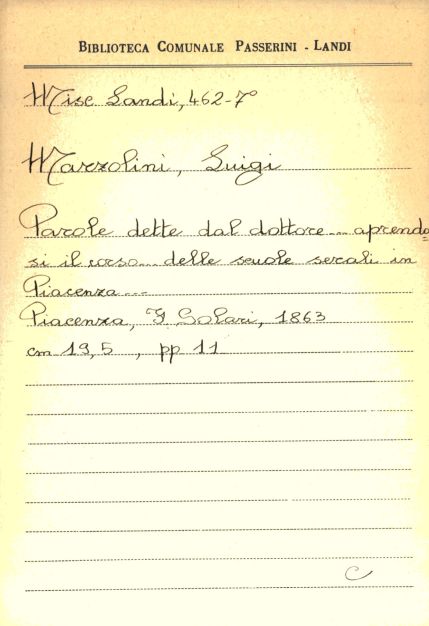 BIBLIOTECA COMUNALE PASSERINI - LANDI
Misc Landi, 462-7°
Marzolini, Luigi
Parole dette dal dottore... aprendo
si il corso... delle scuole serali in
Piacenza...
Piacenza, G Solari, 1863
cm 19,5 , pp 11
C